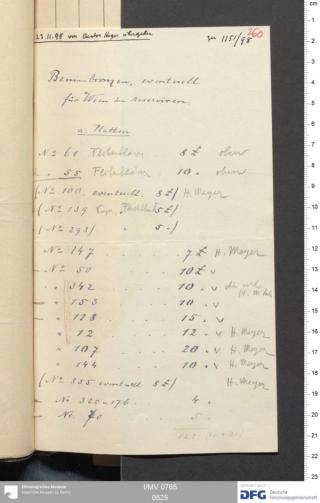 23.11.98 von Doctor Heger übergeben
zu 1151/98
260
Beninbronzen, eventuell
für Wien zu reserviren.
a. Platten
No 61 8 £
" 55 10 "
(No 100, eventuell. 8 £) H. Meyer
(No 139 5 £)
(No 293) " 5 ")
No 147 7 £ H. Meyer
No 50 10 £ v
" 342 10 " v
" 153 10 " v
" 128 15 " v
" 12 12 " v H. Meyer
" 107 20 " v H. Meyer
" 144 10 " v H. Meyer
(No 355 eventuell 8 £) H. Meyer
No. 320 u 176 . 4 "
No. 70 5 "
cm
1
2
3
4
5
6
7
8
9
10
11
12
13
14
15
16
17
18
19
20
21
22
23
Ethnologisches Museum
Staatliche Museen zu Berlin
I/MV 0765
0525
gefördert durch
DFG Deutsche
Forschungsgemeinschaft